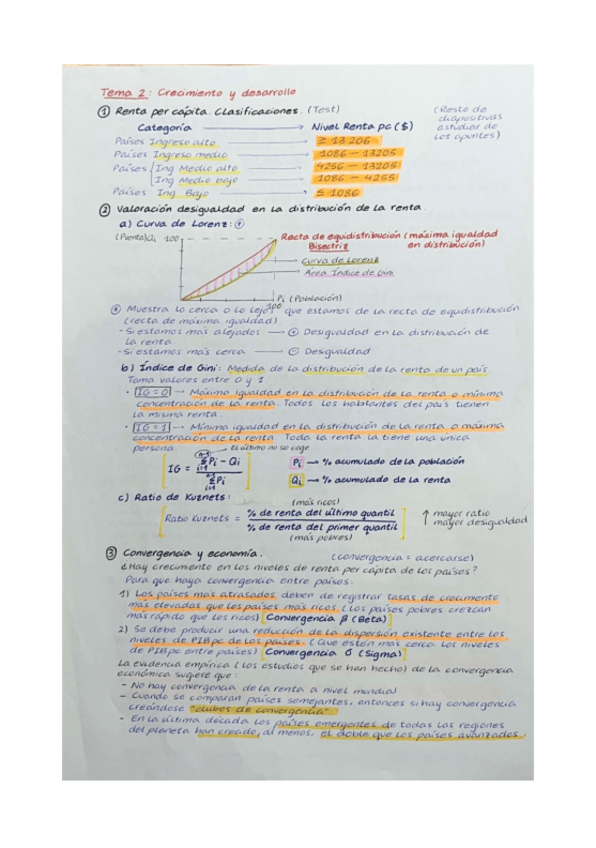 Tema 2: Crecimiento y desarrollo
① Renta per cápita. Clasificaciones. (Test)
(Resto de
diapositivas
estudiar de
los apuntes)
Categoría → Nivel Renta pc ($)
Países Ingreso alto → ≥ 13 206
Países Ingreso medio → 1086 — 13205
Países { Ing Medio alto → 4256 — 13205
Ing Medio bajo → 1086 — 4255
Países Ing Bajo → ≤ 1086
② Valoración desigualdad en la distribución de la renta.
a) Curva de Lorenz:
(Renta)Qi 100
Recta de equidistribución (máxima igualdad
Bisectriz en distribución)
Curva de Lorenz
Área Índice de Gini
Pi (Población)
100
Muestra lo cerca o lo lejos que estamos de la recta de equidistribución
(recta de máxima igualdad)
- Si estamos más alejados → ⊕ Desigualdad en la distribución de
la renta
- Si estamos más cerca → ⊖ Desigualdad
b) Índice de Gini: Medida de la distribución de la renta de un país
Toma valores entre 0 y 1
· IG = 0 → Máxima igualdad en la distribución de la renta o mínima
concentración de la renta. Todos los habitantes del país tienen
la misma renta.
· IG = 1 → Mínima igualdad en la distribución de la renta o máxima
concentración de la renta. Toda la renta la tiene una unica
persona.
El último no se coge
IG = n-1 Σ i=1 Pi - Qi / n-1 Σ i=1 Pi
Pi → % acumulado de la población
Qi → % acumulado de la renta
c) Ratio de Kuznets:
(más ricos)
Ratio Kuznets = % de renta del último quantil / % de renta del primer quantil
(más pobres)
↑ mayor ratio
mayor desigualdad
③ Convergencia y economía. (convergencia = acercarse)
¿Hay crecimiento en los niveles de renta per cápita de los países?
Para que haya convergencia entre países:
1) Los países más atrasados deben de registrar tasas de crecimiento
más elevadas que los países más ricos (Los países pobres crezcan
más rápido que los ricos) [Convergencia β (Beta)]
2) Se debe producir una reducción de la dispersión existente entre los
niveles de PIBpc de los países. (Que estén más cerca los niveles
de PIBpc entre países) [Convergencia σ (Sigma)]
La evidencia empírica (los estudios que se han hecho) de la convergencia
económica sugiere que:
- No hay convergencia de la renta a nivel mundial
- Cuando se comparan países semejantes, entonces si hay convergencia
creándose "clubes de convergencia"
- En la última década los países emergentes de todas las regiones
del planeta han crecido, al menos, el doble que los países avanzados.